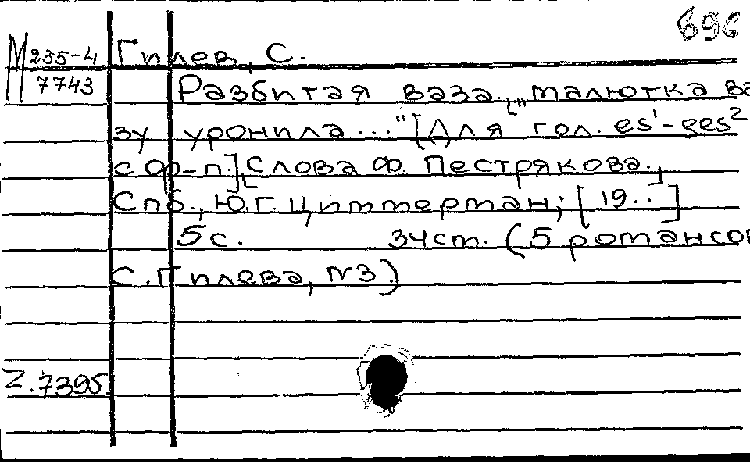 696
М 235-4 Гилев, С.
7743 Разбитая ваза. "Малютка ва
зу уронила..." [Для гол. es¹-ges²
с ф-п.], Слова Ф. Пестрякова.,
Спб., Ю.Г. Циммерман; [19..]
5 с. 34 см. (5 романсов
С. Гилева, №3)
Z.7395